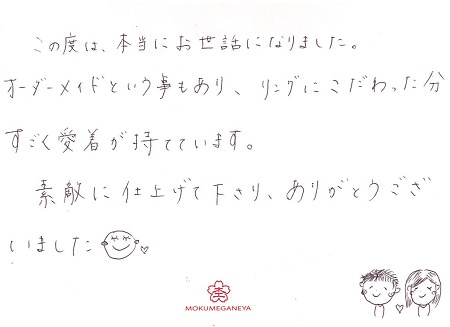 この度は、本当にお世話になりました。
オーダーメイドという事もあり、リングにこだわった分
すごく愛着が持てています。
素敵に仕上げて下さり、ありがとうござ
いました
MOKUMEGANEYA